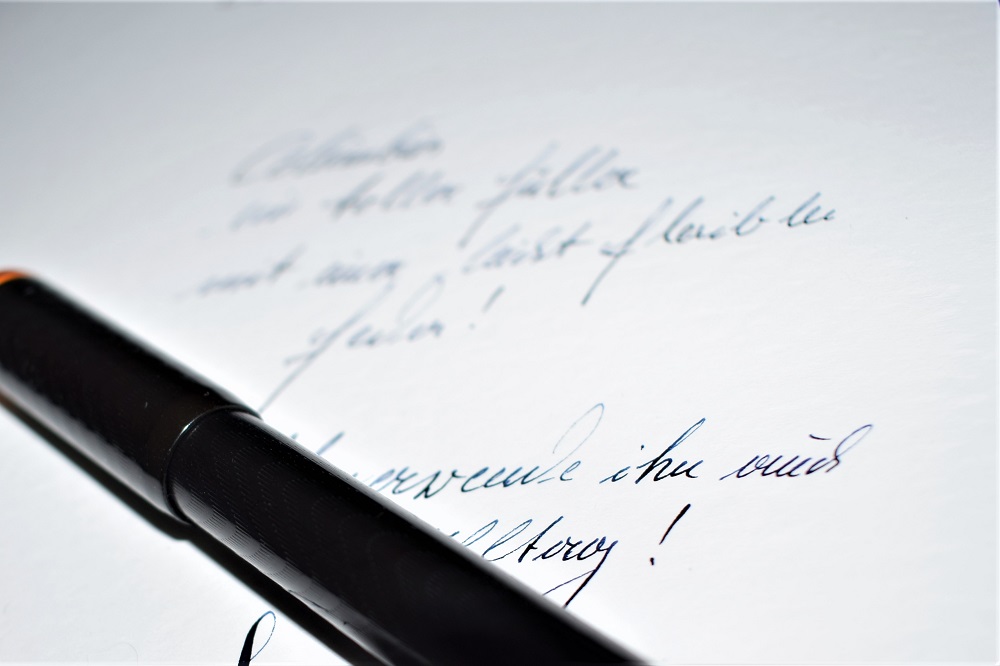 Columbia
ein toller Füller
mit einer leicht flexiblen
Feder!
verwende ihn auch
Alltag!